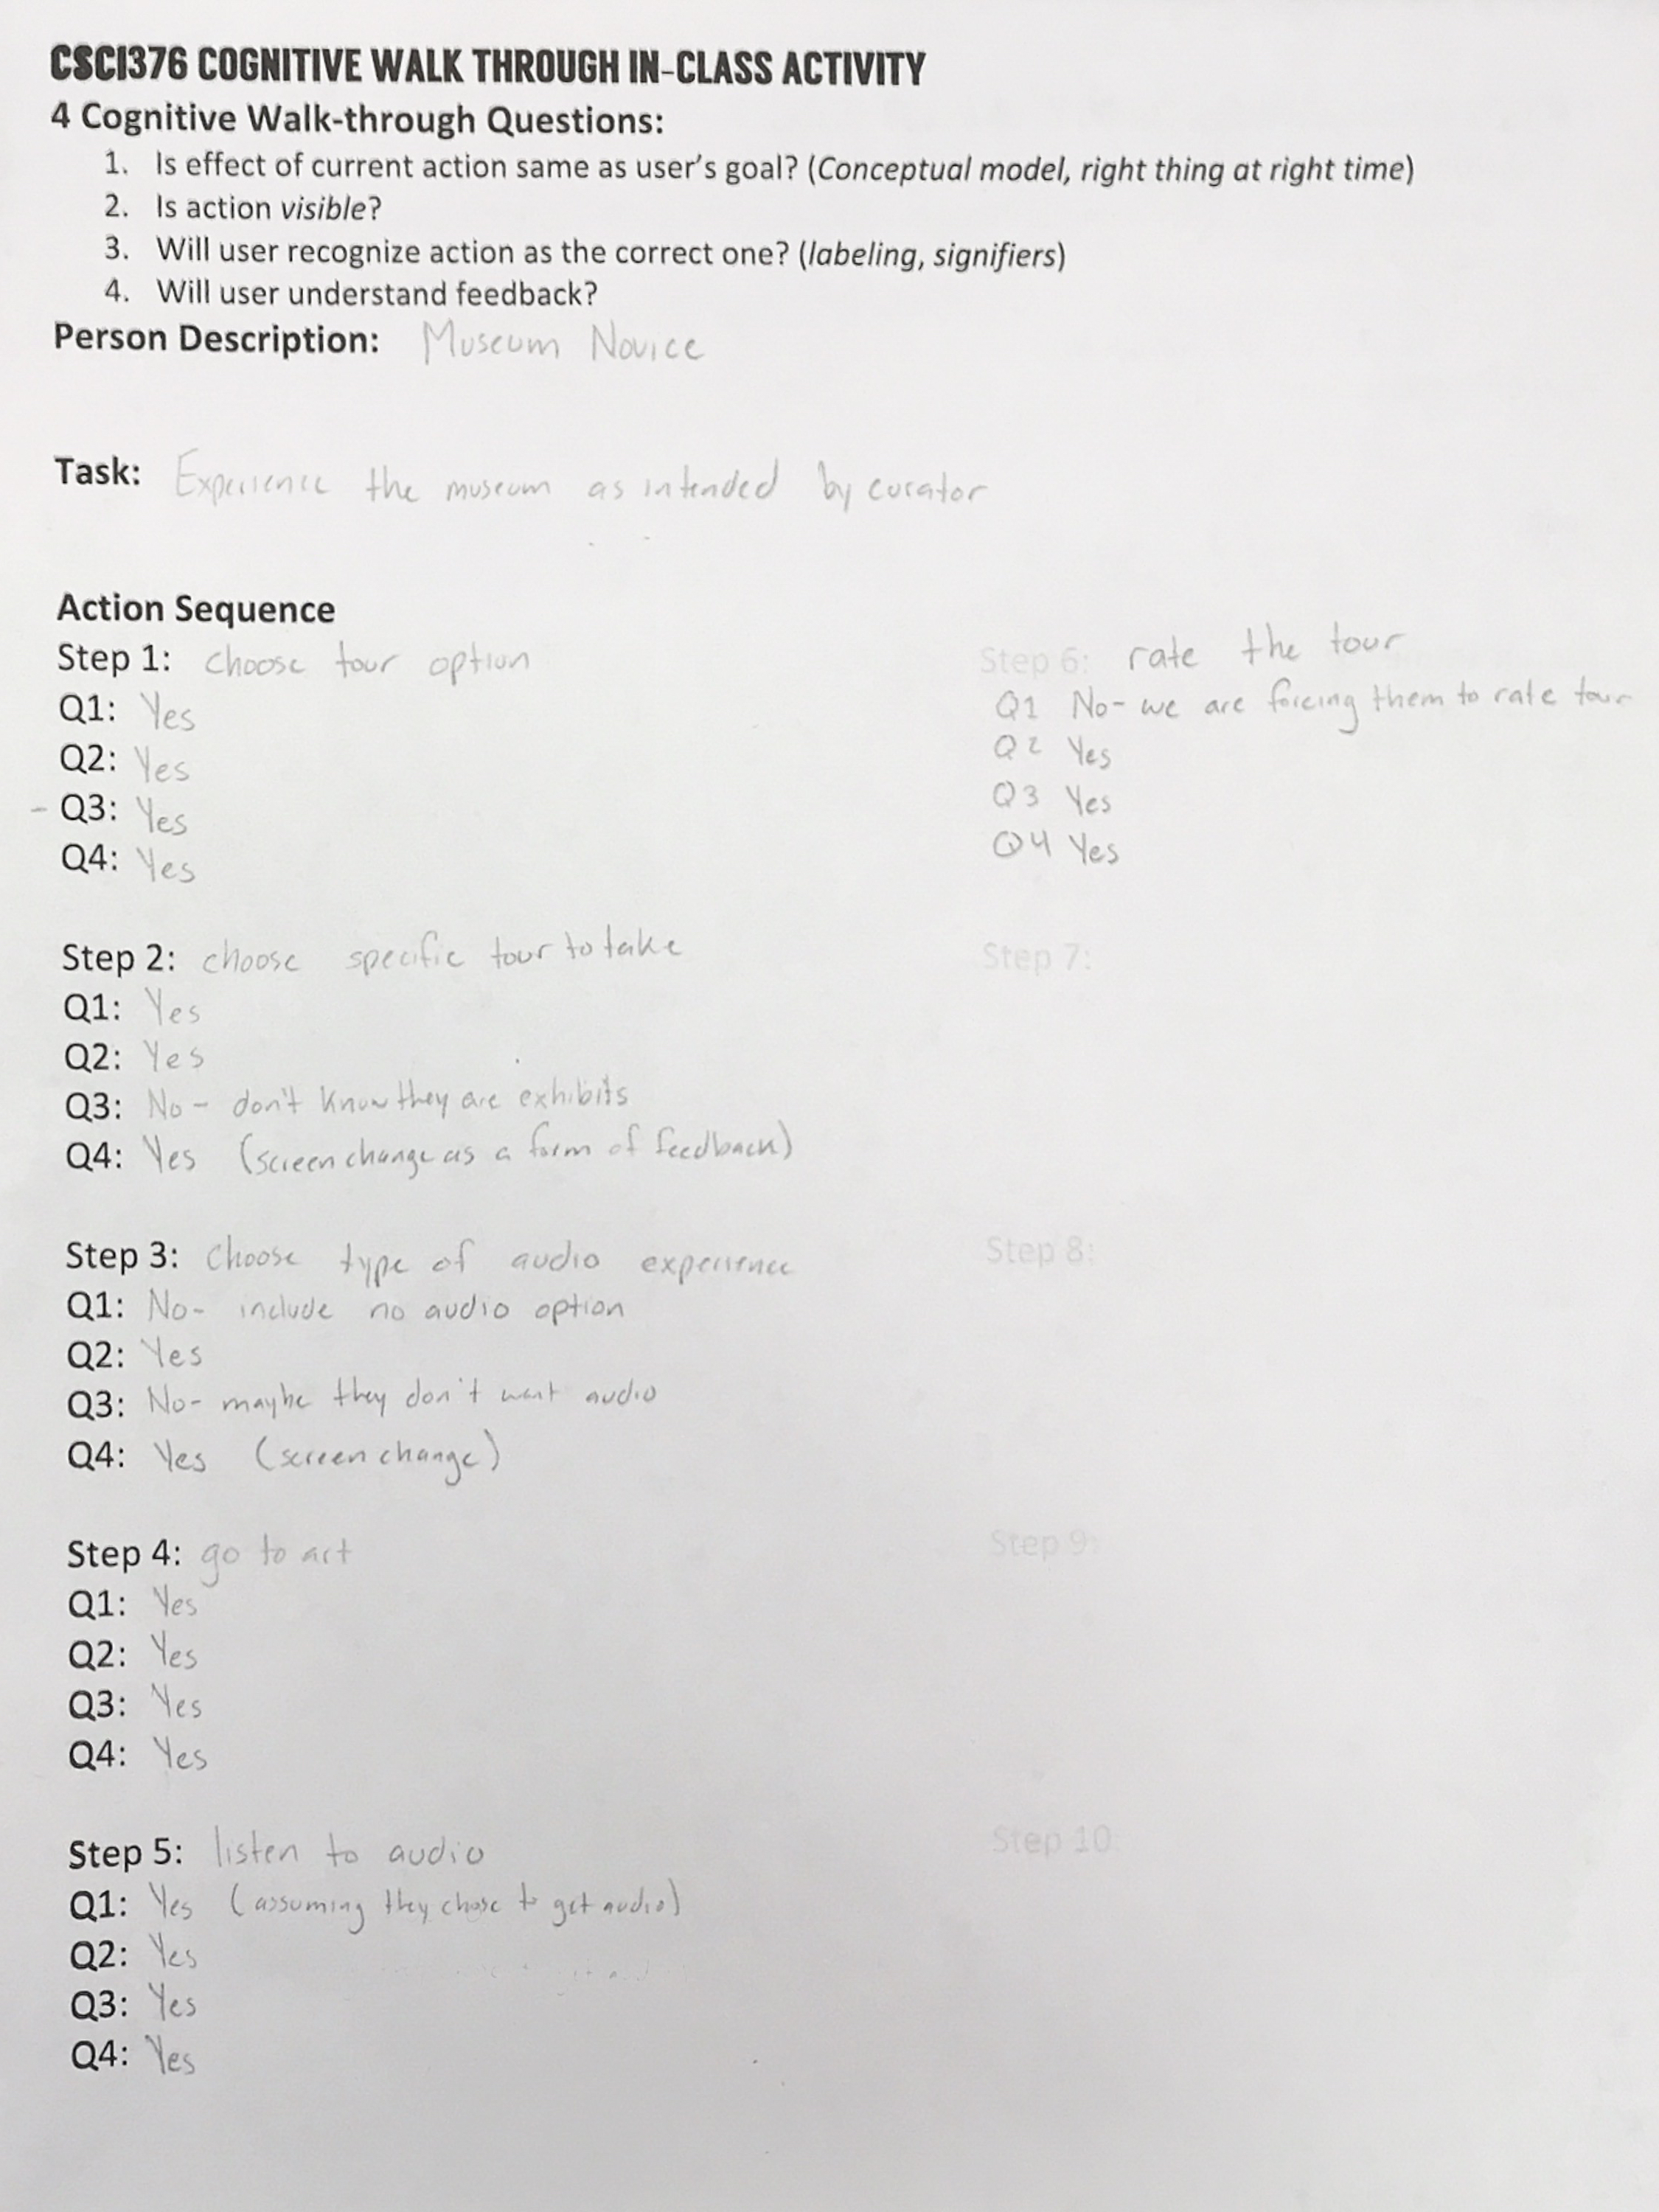 CSCI376 COGNITIVE WALK THROUGH IN-CLASS ACTIVITY
4 Cognitive Walk-through Questions:
1. Is effect of current action same as user's goal? (Conceptual model, right thing at right time)
2. Is action visible?
3. Will user recognize action as the correct one? (labeling, signifiers)
4. Will user understand feedback?
Person Description: Museum Novice
Task: Experience the museum as intended by curator
Action Sequence
Step 1: choose tour option
Q1: Yes
Q2: Yes
- Q3: Yes
Q4: Yes
Step 2: choose specific tour to take
Q1: Yes
Q2: Yes
Q3: No - don't know they are exhibits
Q4: Yes (screen change as a form of feedback)
Step 3: choose type of audio experience
Q1: No- include no audio option
Q2: Yes
Q3: No- maybe they don't want audio
Q4: Yes (screen change)
Step 4: go to art
Q1: Yes
Q2: Yes
Q3: Yes
Q4: Yes
Step 5: listen to audio
Q1: Yes (assuming they chose to get audio)
Q2: Yes
Q3: Yes
Q4: Yes
Step 6: rate the tour
Q1 No- we are forcing them to rate tour
Q2 Yes
Q3 Yes
Q4 Yes
Step 7:
Step 8:
Step 9:
Step 10: